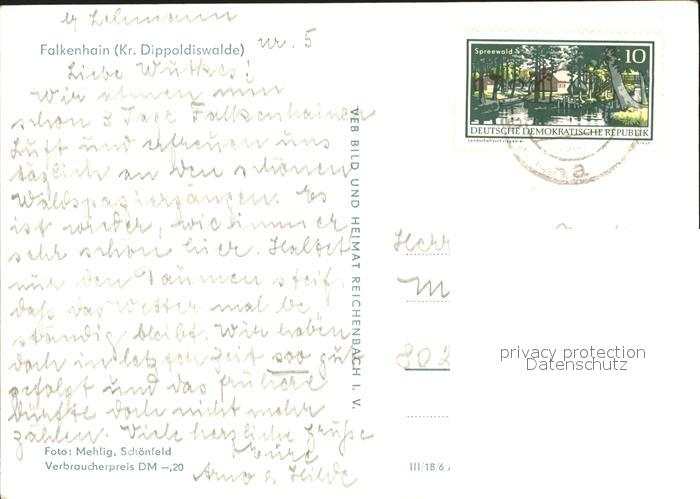 by Lehmann
Falkenhain (Kr. Dippoldiswalde)
nr. 5
Liebe Wutkes!
Wir atmen nun
schon 3 Tage Falkenhainer
Luft und erfreuen uns
täglich an den schönen
Waldspaziergängen. Es
ist wieder, wie immer,
sehr schön hier. Haltet
nur den Daumen steif,
daß das Wetter mal be
ständig bleibt. Wir haben
doch in letzter Zeit soo gut
gefolgt und das frühere
dürfte doch nicht mehr
zählen. Viele herzliche Grüße
Eure
Arno u. Hilde
Foto: Mehlig, Schönfeld
Verbraucherpreis DM –,20
VEB BILD UND HEIMAT REICHENBACH I. V.
III/18/6
Spreewald
10
DEUTSCHE DEMOKRATISCHE REPUBLIK
Landschaftsschutzgebiet
a
Herr
M
802
privacy protection
Datenschutz